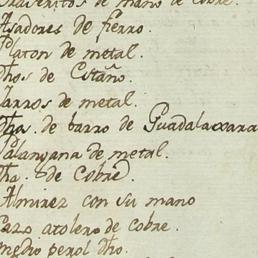 Braseritos de mano de Cobre.
Asadores de fierro.
Platon de metal.
Dhos. de Estaño.
Jarros de metal.
Dha. de barro de Guadalaxara
Palangana de metal.
Dha. de Cobre.
Almirez con su mano
Cazo atolero de cobre.
medio perol Dho.